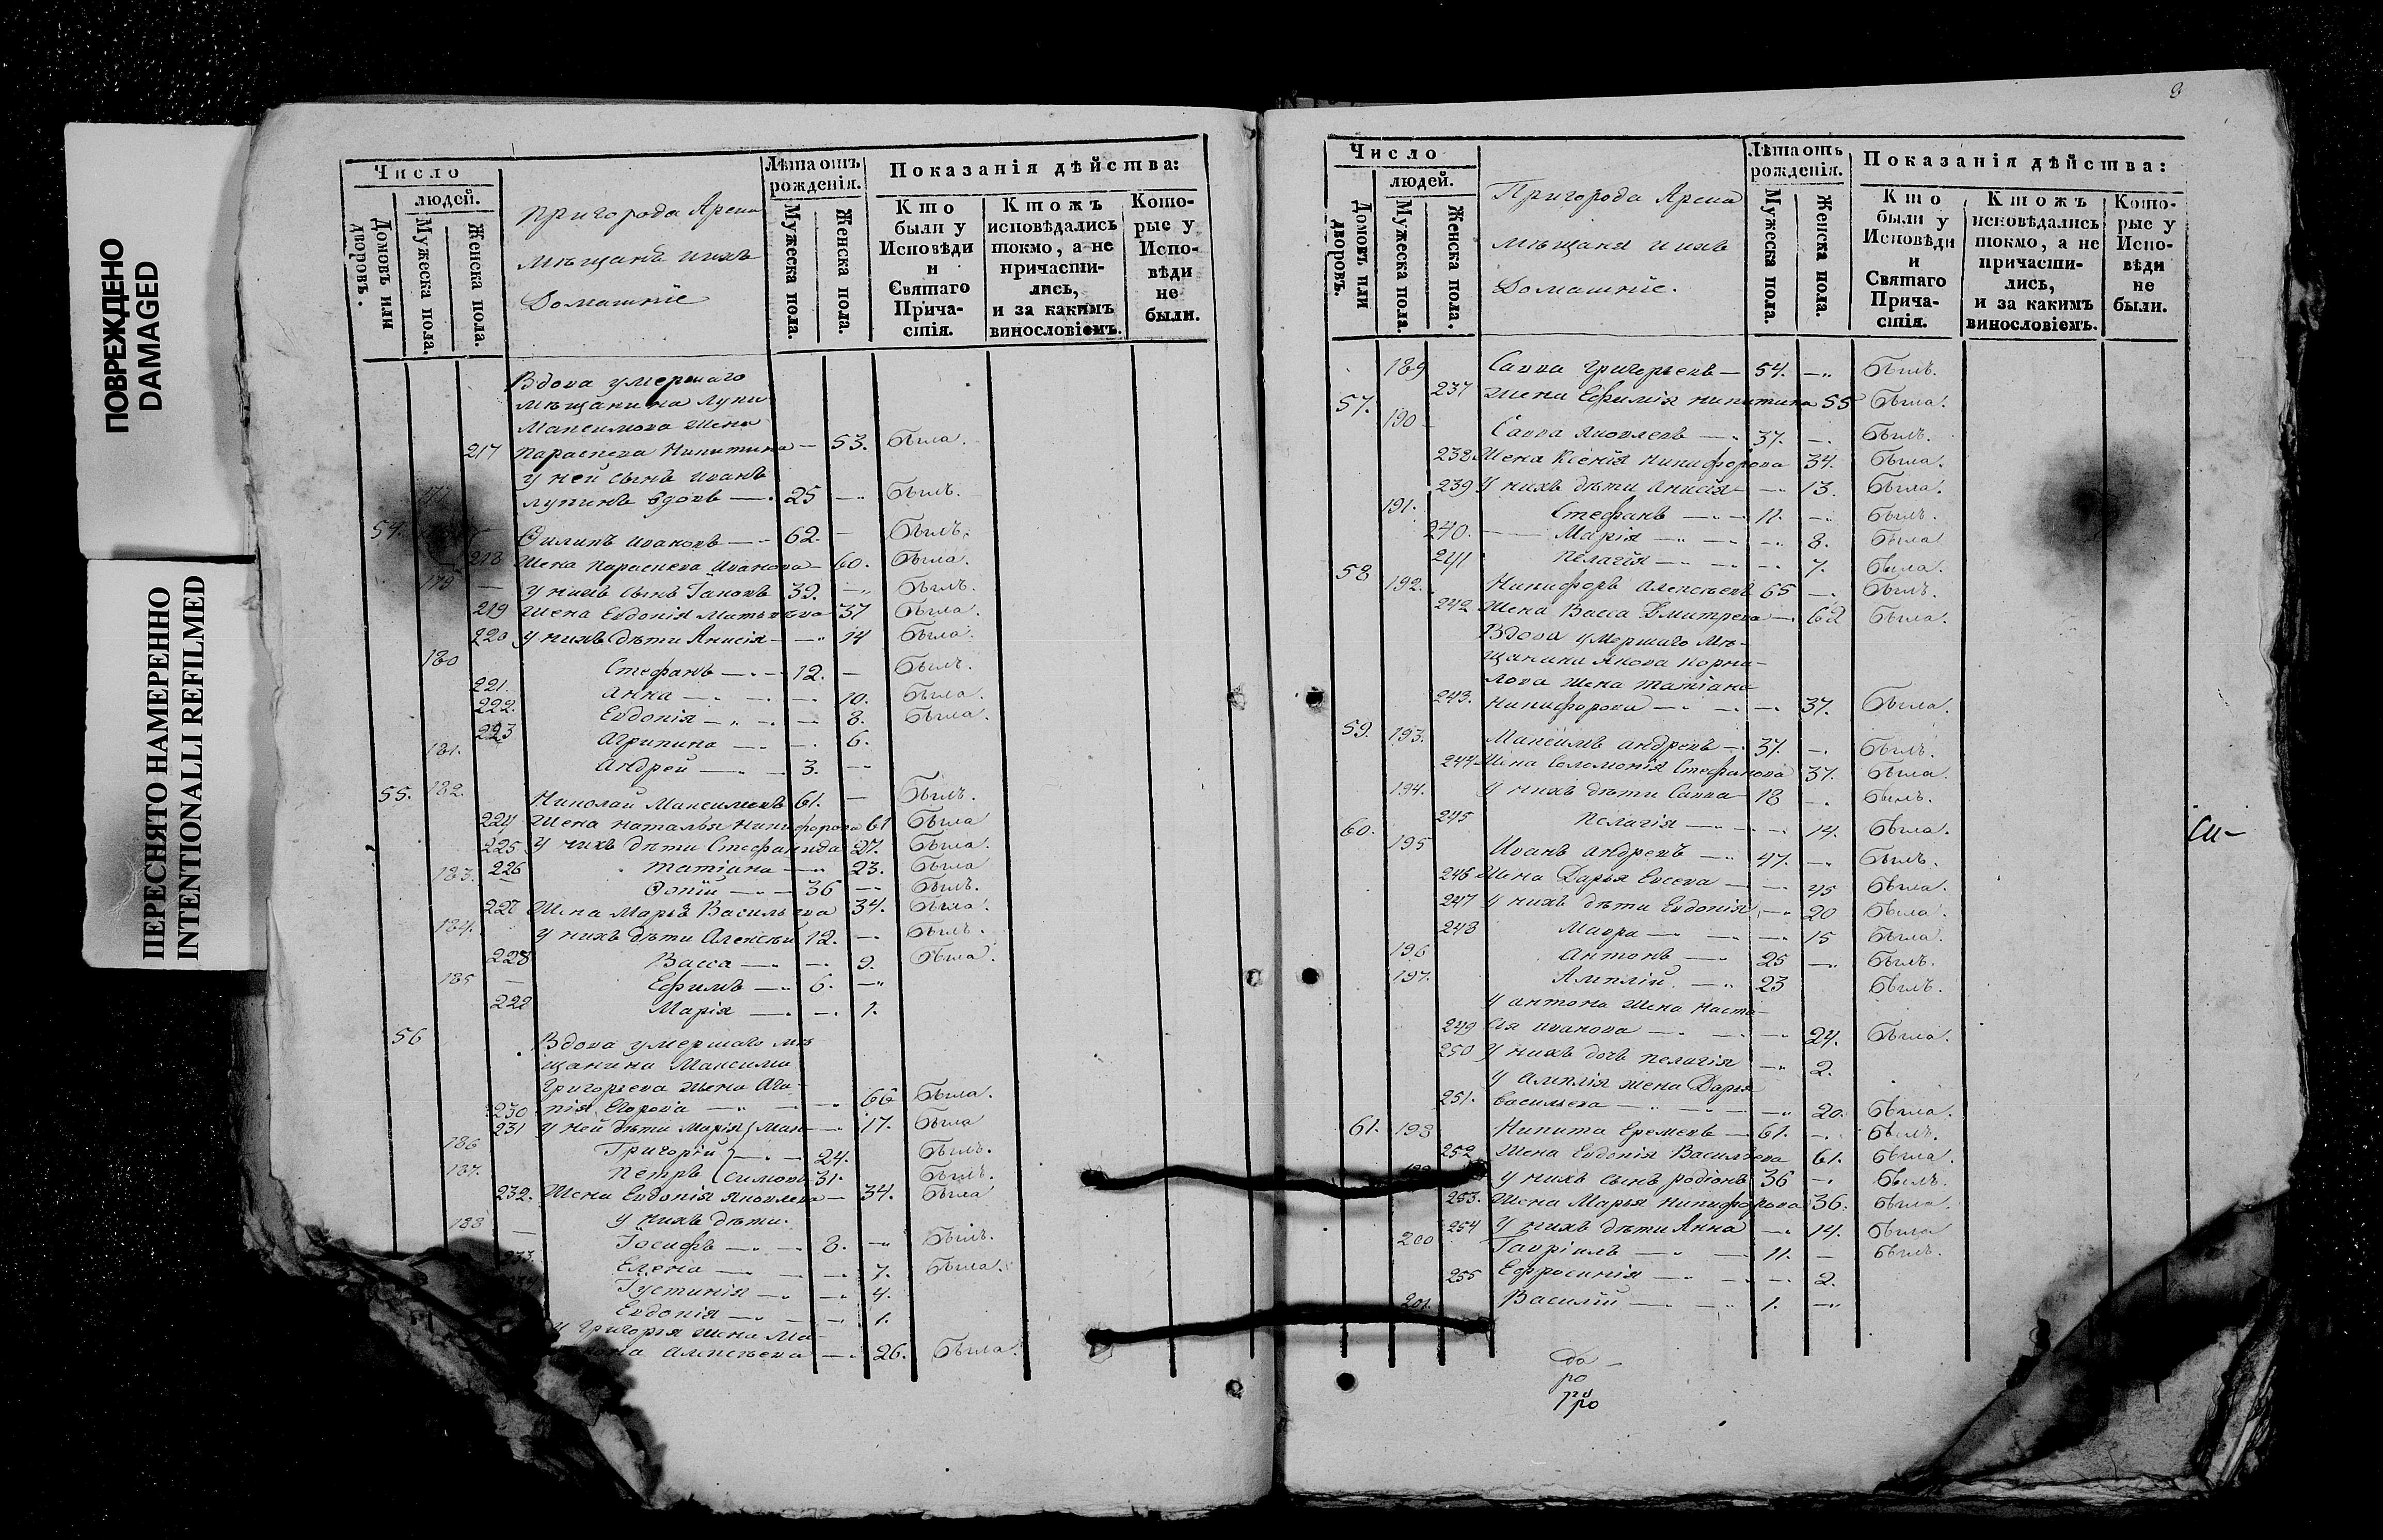 ПОВРЕЖДЕНО
DAMAGED
ПЕРЕСНЯТО НАМЕРЕННО
INTENTIONALLI REFILMED
Число
людей.
Домовъ или дворовъ.
Мужеска пола.
Женска пола.
Пригорода Арска
мѣщане и ихъ
домашніе
Лѣта отъ рожденія.
Мужеска пола.
Женска пола.
Показанія дѣйства:
Кто были у Исповѣди и Святаго Причастія.
Ктожъ исповѣдались токмо, а не причастились, и за какимъ винословіемъ.
Которые у Исповѣди не были.
Вдова умершаго
мѣщанина Лупа
Максимова жена
217 Параскева Никитина — 53. была.
у ней сынъ Иванъ
Лупинъ вдовъ — 25 — былъ.
54. Филипъ Ивановъ — 62. — былъ.
218 Жена Параскева Иванова — 60. была.
179 — у нихъ сынъ Іаковъ 39. — былъ.
219 Жена Евдокія Матвѣева 37 была.
220 у нихъ дѣти Анисія — 14 была.
180 Стефанъ — 12. — былъ.
221. Анна — 10. была.
222. Евдокія — 8. была.
223 Агрипина — 6.
181. Андрей — 3. —
55. 182. Николай Максимовъ 61. — былъ.
224 Жена Наталья Никифорова 61 была
225 У нихъ дѣти Стефанида 27. была.
226 Татіана — 23. была
183. — 36 — былъ.
227 Жена Марья Васильева 34. была.
184. у нихъ дѣти Алексѣй 12. — былъ.
228 Васса — 9. была.
185 — Ефимъ — 6. —
229 Марія — 1.
56 Вдова умершаго мѣ
щанина Максима
Григорьева жена Ага-
230 пія Егорова — 66 была.
231 у ней дѣти Марія (Мак — 17. была
186 Григорій — 24. былъ.
187. Петръ (симовы 31. былъ.
232. Жена Евдокія Яковлева — 34. была
у нихъ дѣти.
188 — Іосифъ — 8. — былъ.
233. Елена — 7. была.
Іустинія — 4.
Евдокія — 1.
у Григорья жена Ма-
Алексѣева — 26. была.
Число
людей.
Домовъ или дворовъ.
Мужеска пола.
Женска пола.
Пригорода Арска
мѣщане и ихъ
домашніе.
Лѣта отъ рожденія.
Мужеска пола.
Женска пола.
Показанія дѣйства:
Кто были у Исповѣди и Святаго Причастія.
Ктожъ исповѣдались токмо, а не причастились, и за какимъ винословіемъ.
Которые у Исповѣди не были.
189 Савва Григорьевъ — 54. — былъ.
237 Жена Ефимія Никитина 55 была.
57. 190 Савва Яковлевъ — 37. — былъ.
238 Жена Ксенія Никифорова 34. была.
239 У нихъ дѣти Анисія — 13. была.
191. Стефанъ — 11. — былъ.
240. — Марія — 8. была
241 Пелагія — 7. была.
58 192. Никифоръ Алексѣевъ 65 — былъ.
242 Жена Васса Дмитрева — 62 была.
Вдова умершаго мѣ-
щанина Якова Корни-
лова жена Татіана
243. Никифорова — 37. была.
59. 193. Максимъ Андревъ — 37. — былъ.
244 Жена Соломонія Стефанова 37. была.
194. У нихъ дѣти Савва — 18 — былъ.
245 Пелагія — 14. была.
60. 195 Иванъ Андревъ — 47. — былъ.
246 Жена Дарья Евсева — 45 была.
247 У нихъ дѣти Евдокія — 20 была.
248 Мавра — 15 была.
196 Антонъ — 25 — былъ.
197. Амплій. — 23 былъ.
У Антона жена Наста-
249 сія Иванова — 24. была.
250 У нихъ дочь Пелагія — 2.
У Амплія жена Дарья
251. Васильева — 20. была.
61. 198 Никита Еремевъ — 61. — былъ.
252 Жена Евдокія Васильева 61. была.
у нихъ сынъ Родіонъ 36 — былъ.
253. Жена Марья Никифорова 36. была.
254 У нихъ дѣти Анна — 14. была
200 Гавріилъ — 11. — былъ.
255 Ефросинія — 2.
201. Василій — 1. —
си-
до-
ро
ро